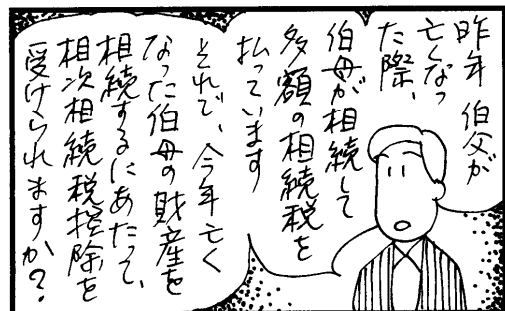 昨年 伯父が
亡くなっ
た際、
伯母が相続して
多額の相続税を
払っています
それで、今年亡く
なった伯母の財産を
相続するにあたって、
相次相続税控除を
受けられますか?